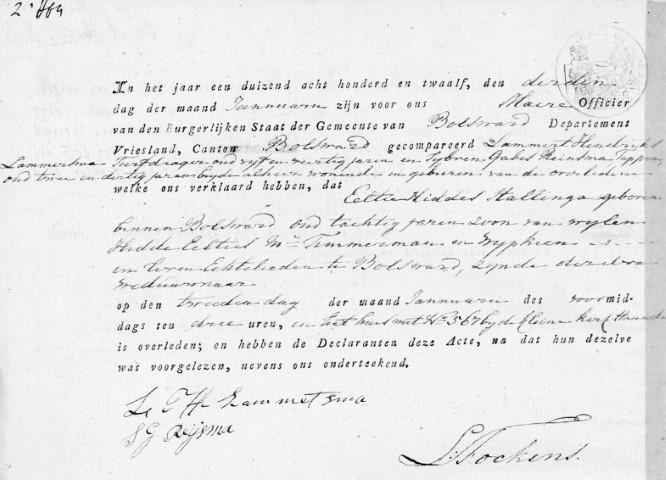 In het jaar een duizend acht honderd en twaalf, den derden
dag der maand Jannuarii zijn voor ons Maire Officier
van den Burgerlijken Staat der Gemeente van Bolsward Departement
Vriesland, Canton Bolsward gecompareerd Lammert Hendriks
Lammersma Turfdrager oud vyf en veertig jaren en Sybren Gabes Reinsma
oud twee en dertig jaren beyde alhier woonende en geburen van de overledene
welke ons verklaard hebben, dat Eeltie Hiddes Stallinga geboren
binnen Bolsward oud tachtig jaren zoon van wylen
Hidde Eelties Mr Timmerman en Wypkien
in leven Echtelieden te Bolsward, zynde dezelve
weduwnaar
op den tweeden dag der maand Jannuarii des voormid-
dags ten drie uren, in het huis met No 567 by de kleine kerk
is overleden; en hebben de Declaranten deze Acte, na dat hun dezelve
was voorgelezen, nevens ons onderteekend.
S G Reijsma
S: Fockens.